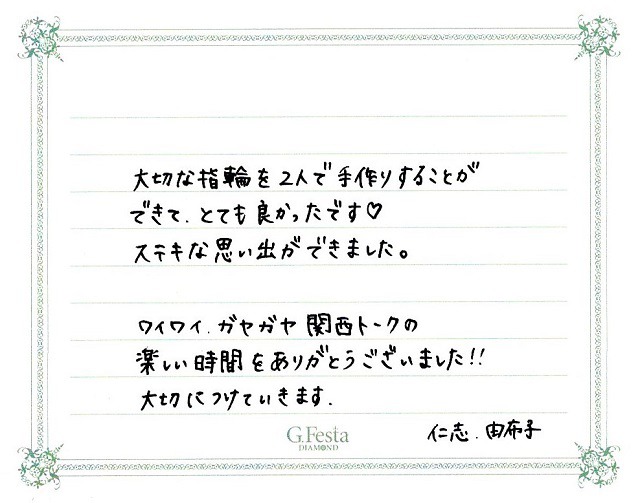 大切な指輪を2人で手作りすることが
できて、とても良かったです♡
ステキな思い出ができました。
ワイワイ、ガヤガヤ関西トークの
楽しい時間をありがとうございました!!
大切につけていきます。
G.Festa
DIAMOND
仁志、由布子